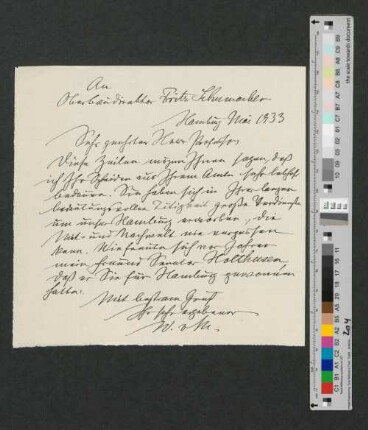 An
Oberbaudirektor Fritz Schumacher
Hamburg Mai 1933
Sehr geehrter Herr Professor,
Diese Zeilen mögen Ihnen sagen, daß
ich Ihr Scheiden aus Ihrem Amte sehr lebhaft
bedaure. Sie haben sich in Ihrer langen
bedeutungsvollen Tätigkeit große Verdienste
um unser Hamburg erworben, die
Mit- und Nachwelt nie vergessen
kann. Wie freute sich vor Jahren
mein Freund Senator Holthusen,
daß er Sie für Hamburg gewonnen
hatte.
Mit bestem Gruß
Ihr sehr ergebener
W. v. M.
204